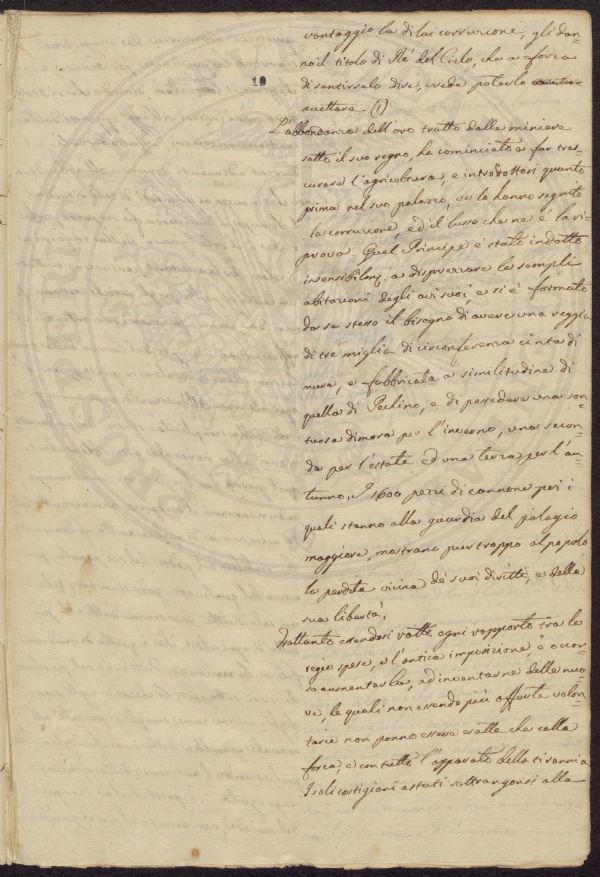 vantaggio la di lui corruzione, gli dan=
no il titolo di Rè del Cielo, che a forza
10
di sentirselo dire, crede poterlo
accettare. (1)
L'abbondanza dell'oro tratto dalle miniere
sotto il suo regno, ha cominciato a far tras=
curare l'agricoltura, e introdottosi quanto
prima nel suo palazzo, ve lo hanno seguito
la corruzione, ed il lusso che ne è la ri=
prova. Quel Principe è stato indotto
insensibilmẽ. a disprezzare le semplici
abitazioni degli avi suoi, e si è formato
da se stesso il bisogno di avere una reggia
di tre miglia di circonferenza cinta di
mura, e fabbricata a similitudine di
quella di Pechino, e di possedere una son=
tuosa dimora per l'inverno, una secon=
da per l'estate ed una terza per l'au=
tunno. I 1600 pezzi di cannone poi i
quali stanno alla guardia del palagio
maggiore, mostrano purtroppo al popolo
la perdita vicina de' suoi diritti, e della
sua libertà.
Frattanto essendosi rotto ogni rapporto tra le
regie spese, e l'antica imposizione, è occor=
so aumentarla, ed inventarne delle nuo=
ve, le quali non essendo più offerte volon=
tarie non ponno essere esatte che colla
forza, e con tutto l'apparato della tirannia
I soli cortigiani astuti sottrangonsi alla